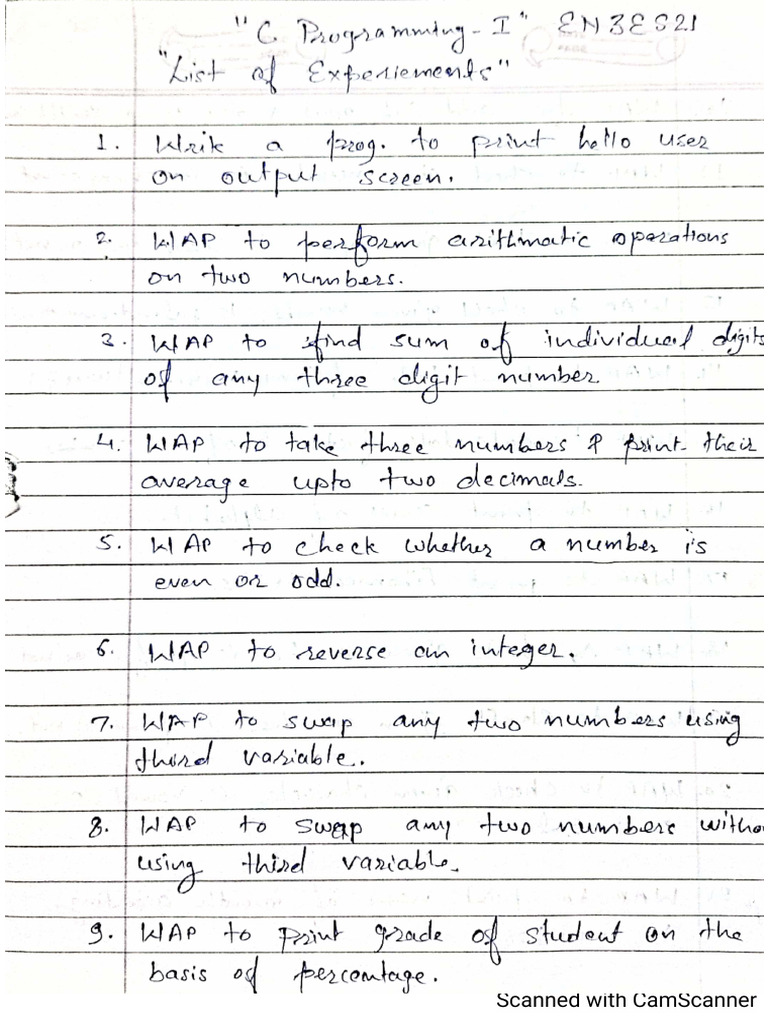 "C Programming - I" EN3ES21
"List of Experiements"
1. Write a prog. to print hello user
on output screen.
2. WAP to perform arithmatic operations
on two numbers.
3. WAP to find sum of individual digits
of any three digit number
4. WAP to take three numbers & print their
average upto two decimals.
5. WAP to check whether a number is
even or odd.
6. WAP to reverse an integer.
7. WAP to swap any two numbers using
third variable.
8. WAP to swap any two numbers witho
using third variable.
9. WAP to print grade of student on the
basis of percentage.
Scanned with CamScanner